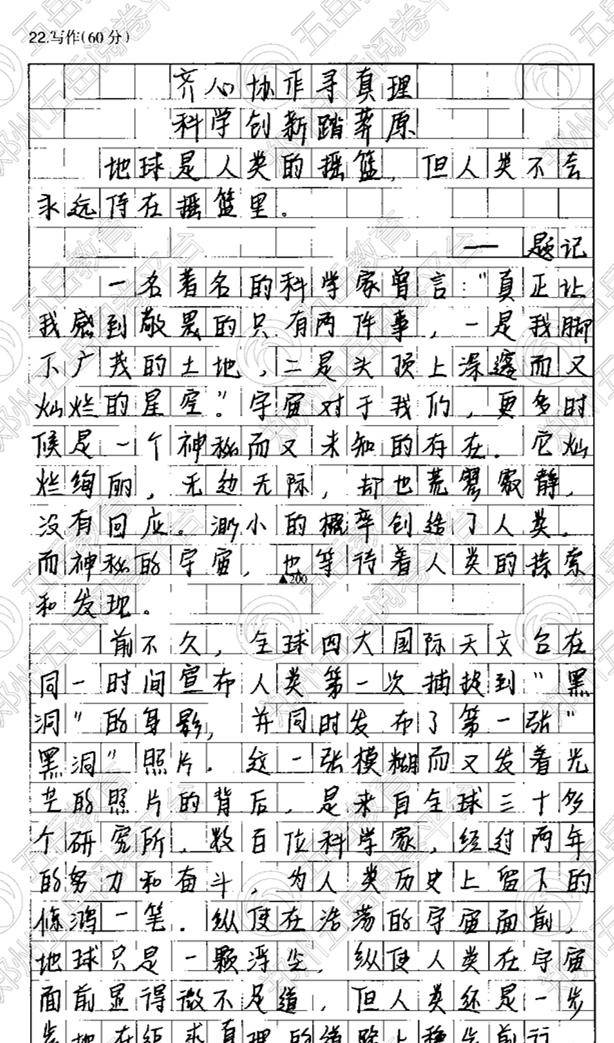 22.写作(60分)
齐心协作寻真理
科学创新踏莽原
地球是人类的摇篮,但人类不会
永远待在摇篮里。
——题记
一名著名的科学家曾言:"真正让
我感到敬畏的只有两件事,一是我脚
下广茂的土地,二是头顶上深邃而又
灿烂的星空。"宇宙对于我们,更多时
候是一个神秘而又未知的存在。它灿
烂绚丽,无边无际,却也荒寥寂静,
没有回应。渺小的概率创造了人类。
而神秘的宇宙,也等待着人类的探索
▲200
和发现。
前不久,全球四大国际天文台在
同一时间宣布人类第一次捕捉到"黑
洞"的身影,并同时发布了第一张"
黑洞"照片。这一张模糊而又发着光
芒的照片的背后,是来自全球三十多
个研究所,数百位科学家,经过两年
的努力和奋斗,为人类历史上留下的
惊鸿一笔。纵使在浩荡的宇宙面前,
地球只是一颗浮尘,纵使人类在宇宙
面前显得微不足道,但人类还是一步
步地在追求真理的道路上稳步前行。
郑州五岳教育
五岳阅卷平台